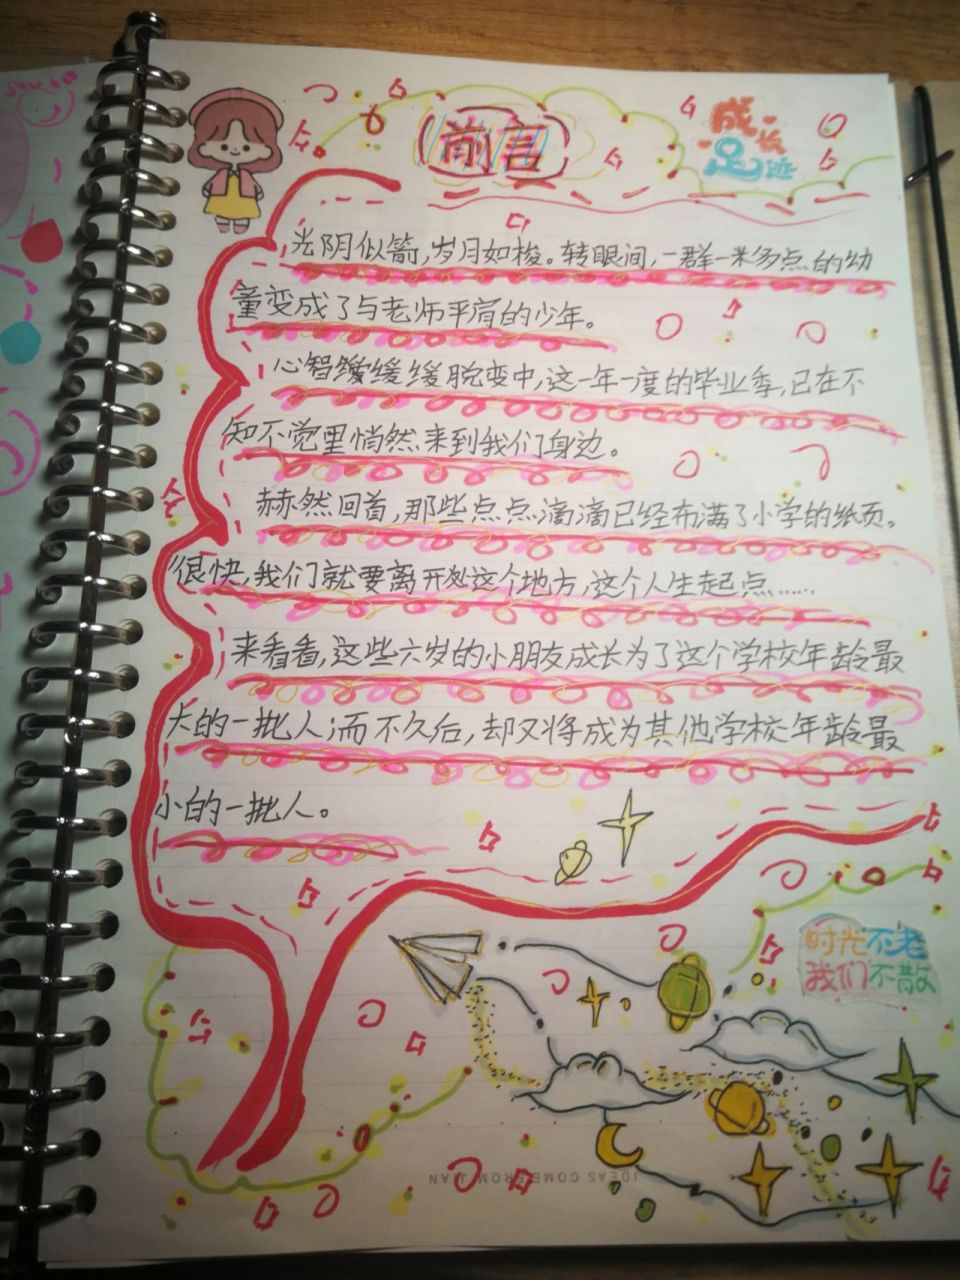 前言
成长
足迹
光阴似箭,岁月如梭。转眼间,一群一米多点的幼
童变成了与老师平肩的少年。
心智缓缓缓脱变中,这一年一度的毕业季,已在不
知不觉里悄然来到我们身边。
赫然回首,那些点点滴滴已经布满了小学的纸页。
很快,我们就要离开处这个地方,这个人生起点……
来看看,这些六岁的小朋友成长为了这个学校年龄最
大的一批人;而不久后,却又将成为其他学校年龄最
小的一批人。
时光不老
我们不散
IDEAS COME FROM